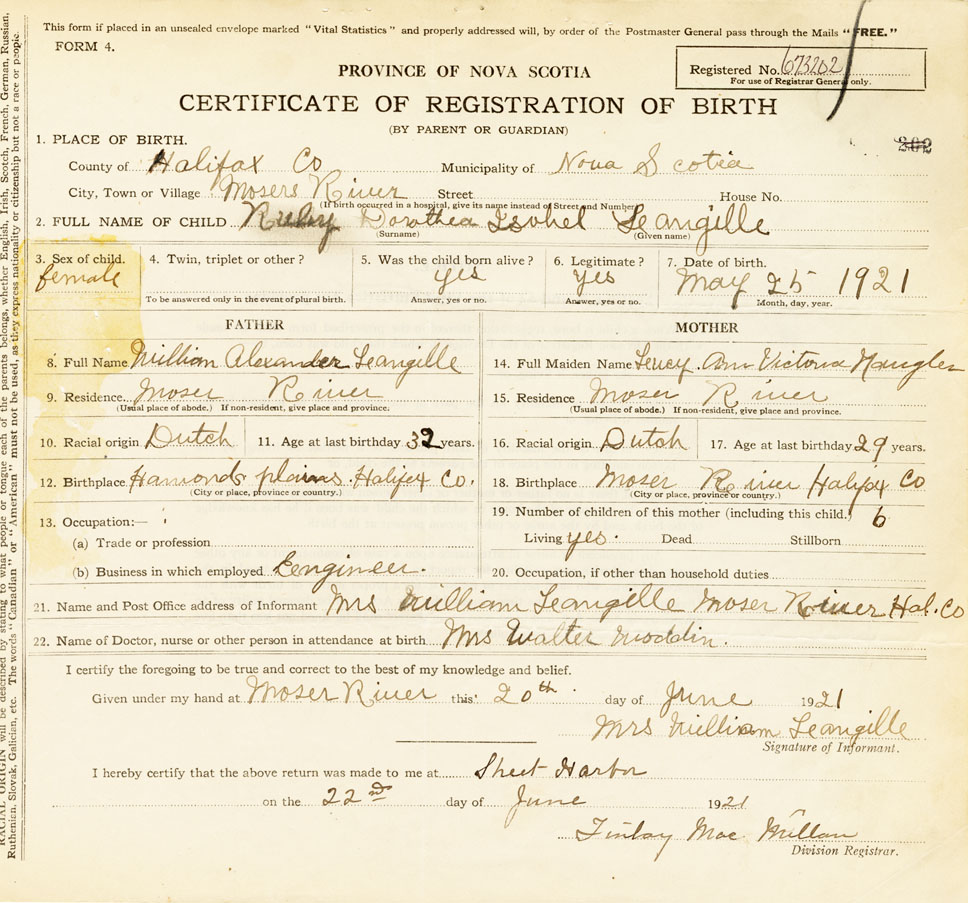 This form if placed in an unsealed envelope marked "Vital Statistics" and properly addressed will, by order of the Postmaster General pass through the Mails "FREE."
FORM 4.
PROVINCE OF NOVA SCOTIA
Registered No. 673202
For use of Registrar General only.
CERTIFICATE OF REGISTRATION OF BIRTH
(BY PARENT OR GUARDIAN)
1. PLACE OF BIRTH.
County of Halifax Co Municipality of Nova Scotia
City, Town or Village Mosers River Street House No.
(If birth occurred in a hospital, give its name instead of Street and Number)
2. FULL NAME OF CHILD Ruby Dorothea Isobel Leangille
(Surname) (Given name)
3. Sex of child. 4. Twin, triplet or other? 5. Was the child born alive? 6. Legitimate? 7. Date of birth.
female yes yes May 25 1921
To be answered only in the event of plural birth. Answer, yes or no. Answer, yes or no. Month, day, year.
FATHER
8. Full Name William Alexander Leangille
9. Residence Moser River
(Usual place of abode.) If non-resident, give place and province.
10. Racial origin Dutch 11. Age at last birthday 32 years.
12. Birthplace Hamonds plains Halifax Co.
(City or place, province or country.)
13. Occupation:—
(a) Trade or profession
(b) Business in which employed Eengineer.
MOTHER
14. Full Maiden Name Leucy Ann Victoria Naugler
15. Residence Moser River
(Usual place of abode.) If non-resident, give place and province.
16. Racial origin Dutch 17. Age at last birthday 29 years.
18. Birthplace Moser River Halifax Co
(City or place, province or country.)
19. Number of children of this mother (including this child.) 6
Living yes. Dead Stillborn
20. Occupation, if other than household duties
21. Name and Post Office address of Informant Mrs William Leangille Moser River Hal. Co
22. Name of Doctor, nurse or other person in attendance at birth Mrs Walter Moddin.
I certify the foregoing to be true and correct to the best of my knowledge and belief.
Given under my hand at Moser River this 20th day of June 1921
Mrs William Leangille
Signature of Informant.
I hereby certify that the above return was made to me at Sheet Harbor
on the 22nd day of June 1921
Finlay Mac Millan
Division Registrar.
RACIAL ORIGIN will be described by stating to what people or tongue each of the parents belongs, whether English, Irish, Scotch, French, German, Russian,
Ruthenian, Slovak, Galician, etc. The words "Canadian" or "American" must not be used, as they express nationality or citizenship but not a race or people.